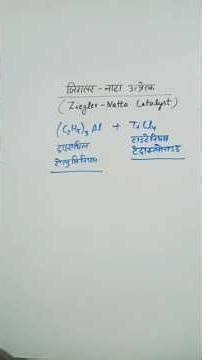 जिगलर - नाटा उत्प्रेरक
(Ziegler-Natta Catalyst)
(C₂H₅)₃ Al + TiCl₄
ट्राइएथिल टाइटेनियम
ऐलुमिनियम टेट्राक्लोराइड